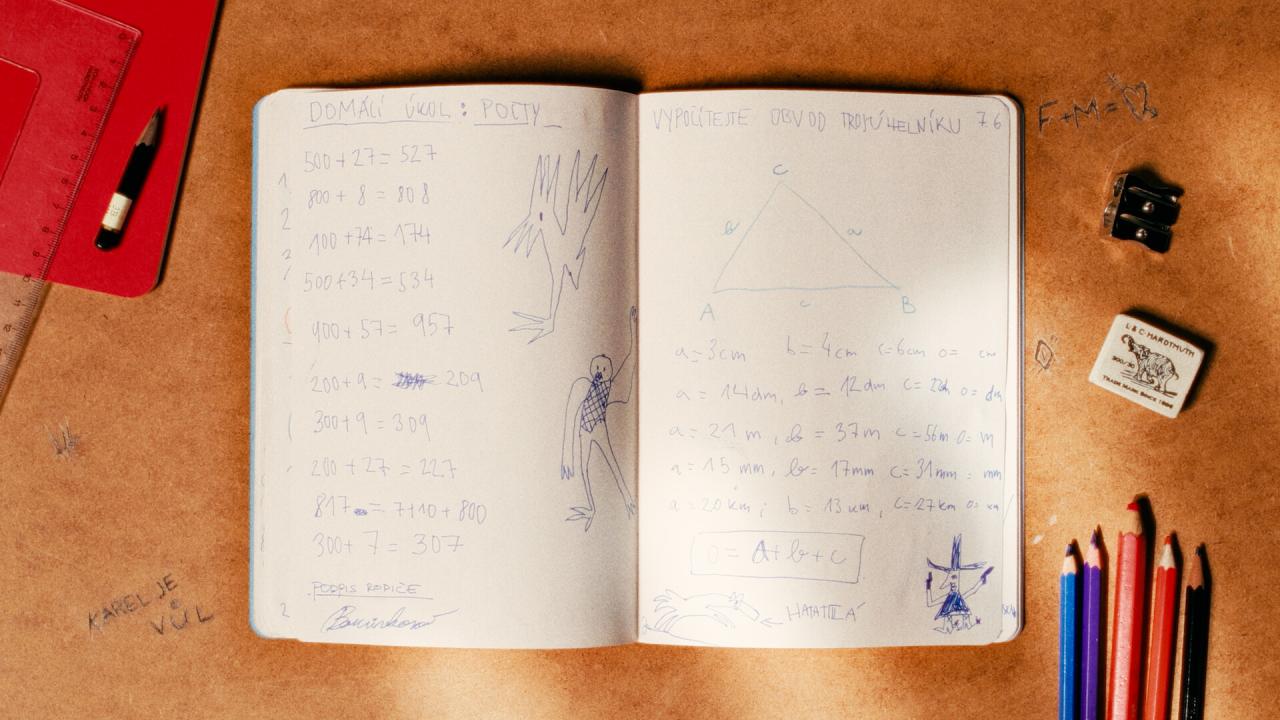 DOMÁCÍ ÚKOL: POČTY
500 + 27 = 527
800 + 8 = 808
100 + 74 = 174
500 + 34 = 534
900 + 57 = 957
200 + 9 = 209
300 + 9 = 309
200 + 27 = 227
817 = 7 + 10 + 800
300 + 7 = 307
PODPIS RODIČE
VYPOČÍTEJTE OBVOD TROJÚHELNÍKU 7.6
C
b a
A c B
a = 3cm b = 4cm c = 6cm o = cm
a = 14dm, b = 12dm c = dm o = dm
a = 21 m, b = 37m c = 56m o = m
a = 15 mm, b = 17mm c = 31mm = mm
a = 20 km; b = 13 km, c = 27km o = km
o = A + b + c
F + M =
L & C HARDTMUTH
300/30
TRADE MARK SINCE 1896
KAREL JE
VŮL